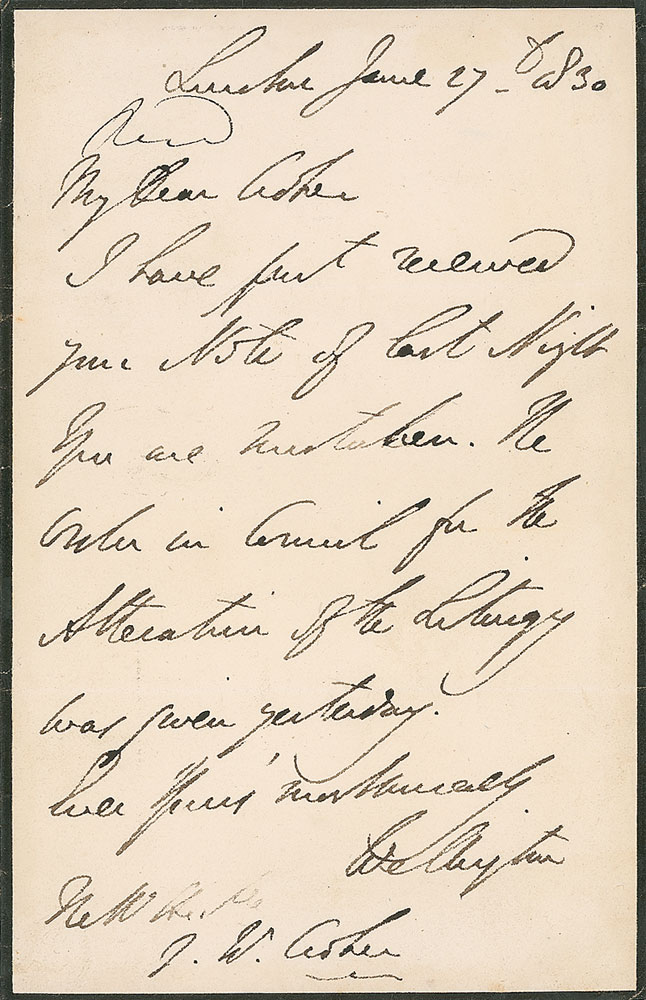 London June 27th 1830
My Dear Croker
I have just received
your Note of last Night
You are mistaken. The
Order in Council for the
Alteration of the Liturgy
was given yesterday.
Ever Yours most sincerely
Wellington
J. W. Croker